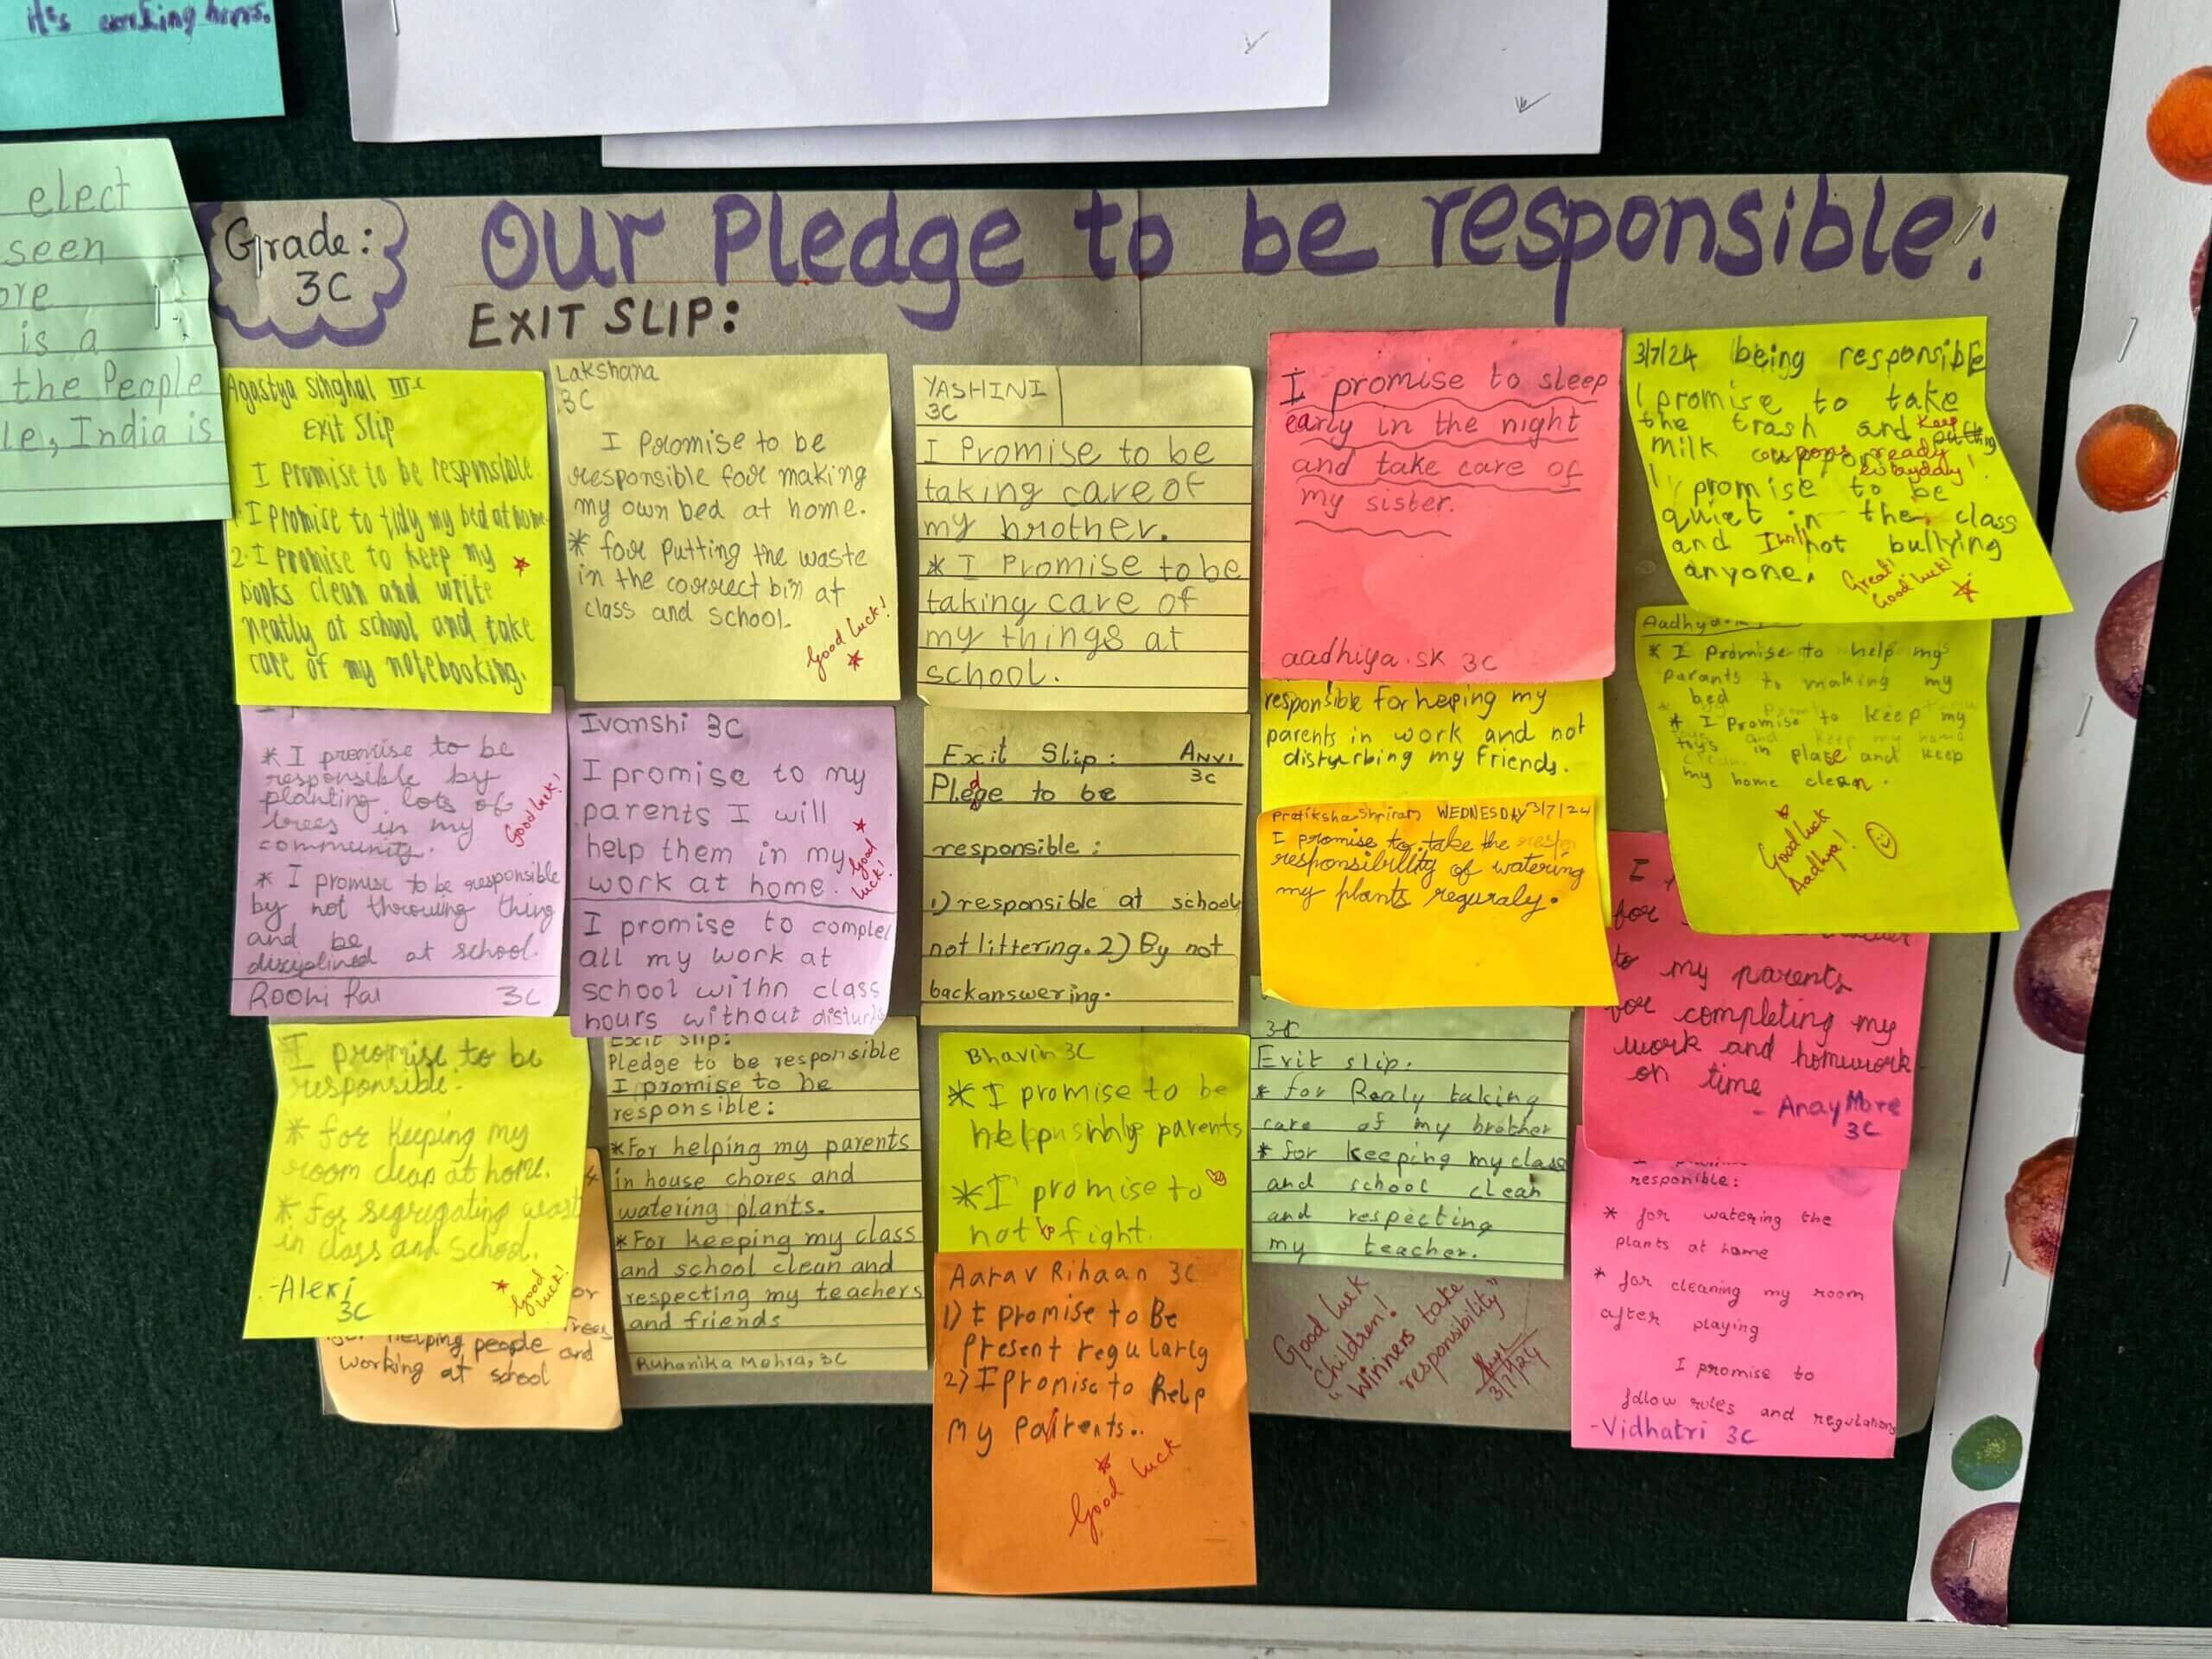 it's working hours.
elect
seen
ore
is a
the People
le, India is
Grade:
3C
Our Pledge to be responsible!
EXIT SLIP:
Agastya Singhal III C
Exit Slip
I Promise to be responsible
1. I Promise to tidy my bed at home.
2. I Promise to keep my
books clean and write
neatly at school and take
care of my notebooking.
Lakshana
3C
I Promise to be
responsible for making
my own bed at home.
* for putting the waste
in the correct bin at
class and school.
Good luck!
YASHINI
3C
I Promise to be
taking care of
my brother.
* I Promise to be
taking care of
my things at
school.
I promise to sleep
early in the night
and take care of
my sister.
aadhiya.SK 3C
3/7/24 being responsible
I promise to take
the trash and keep
milk coupons ready
everyday!
I promise to be
quiet in the class
and I will not bullying
anyone.
Great!
Good luck!
* I promise to be
responsible by
planting lots of
trees in my
community.
* I promise to be responsible
by not throwing thing
and be
disciplined at school.
Good luck!
Roohi Rai 3C
Ivanshi 3C
I promise to my
parents I will
help them in my
work at home.
Good
luck!
I promise to complet
all my work at
school withn class
hours without disturb
Exit Slip: ANVI
3C
Pledge to be
responsible:
1) responsible at school
not littering. 2) By not
backanswering.
responsible for heping my
parents in work and not
disturbing my friends.
Pratiksha Shriram WEDNESDAY 3/7/24
I promise to take the
responsibility of watering
my plants reguraly.
* I Promise to help my
parants to making my
bed
* I Promise to keep my
toys in place and keep
my home clean.
Good luck
Aadhya!
I
for
to my parents
for completing my
work and homework
on time
- Anay More
3C
I promise to be
responsible.
* for keeping my
room clean at home.
* for segregating wast
in class and School.
-Alexi
3C
Good
luck!
or
Trees
for helping people and
working at school
Exit Slip:
Pledge to be responsible
I promise to be
responsible:
*For helping my parents
in house chores and
watering plants.
*For keeping my class
and school clean and
respecting my teachers
and friends
Ruhanika Mehra, 3C
Bhavin 3C
* I promise to be
help my parents
* I promise to
not to fight.
Aarav Rihaan 3C
1) I promise to Be
Present regularly
2) I promise to help
my parents..
Good luck
3C
Exit slip.
* for Realy taking
care of my brother
* for keeping my class
and school clean
and respecting
my teacher.
Good luck
children!
"Winners take
responsibility"
3/7/24
responible:
* for watering the
plants at home
* for cleaning my room
after playing
I promise to
follow rules and regulations
-Vidhatri 3C